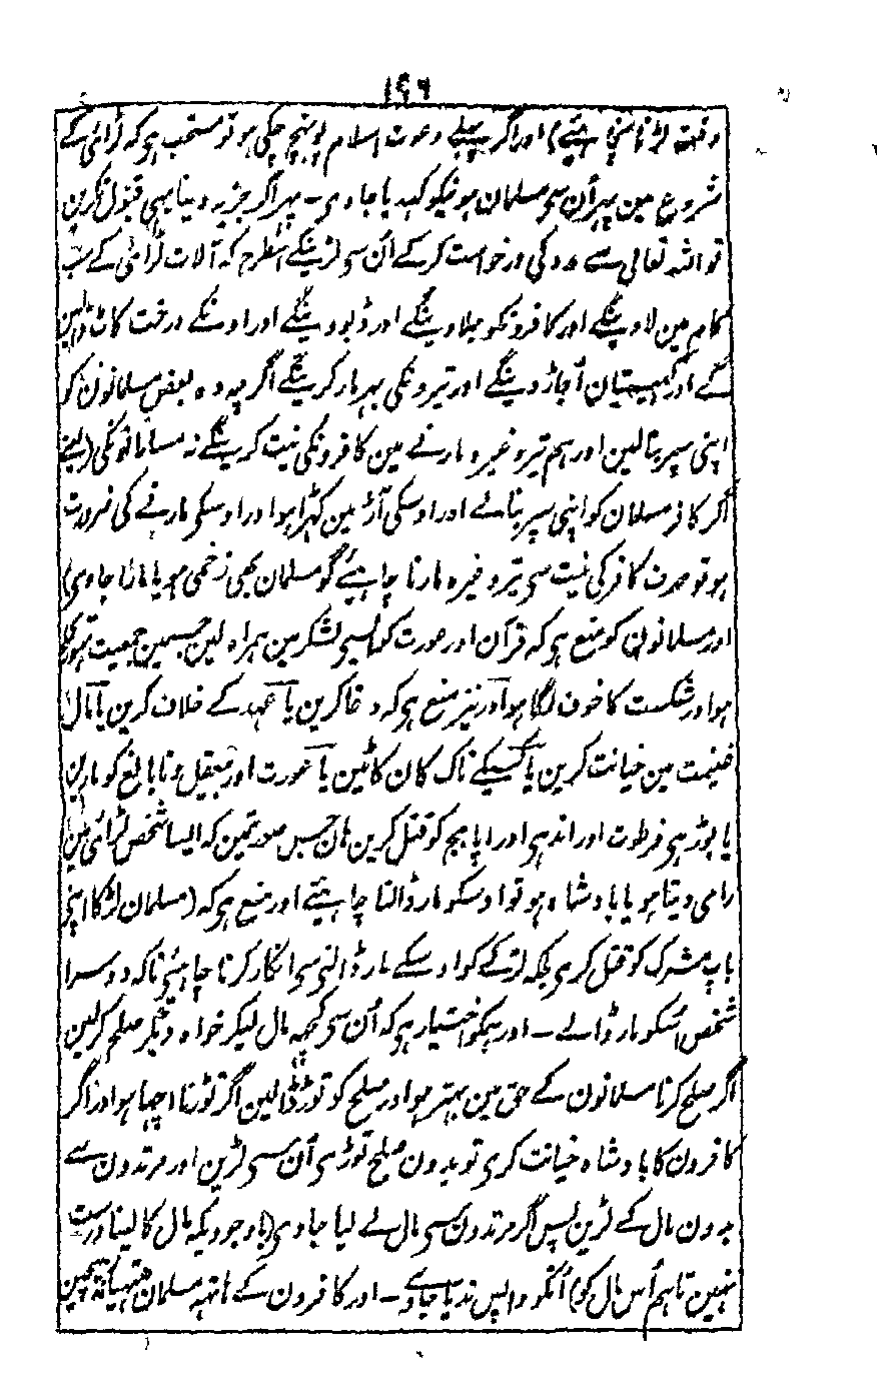 ۱۹۶
وقت لڑنا نہین چاہیئے) اور اگر پہلے دعوت اسلام پہنچ چکی ہو تو مستحب ہی کہ لڑائی کے
شروع مین پہر اُن سی مسلمان ہونیکو کہدیا جاوی۔ پہر اگر جزیہ دینا بہی قبول نکرین
تو اللہ تعالی سے مدد کی درخواست کر کے اُن سی لڑینگے اسطرح کہ آلات لڑائی کے سب
کام مین لاوینگے اور کافرونکو جلاوینگے اور ڈبودینگے اور اونکے درخت کاٹ ڈالین
گے اور کہیتیان اُجاڑ دینگے اور تیرونکی بہرمار کرینگے اگرچہ وہ بعض مسلمانون کو
اپنی سپر بنالین اور ہم تیر وغیرہ مارنے مین کافرونکی نیت کرینگے نہ مسلمانونکی (یعنے
اگر کافر مسلمان کو اپنی سپر بنالے اور اوسکی آڑ مین کہڑا ہو اور اوسکی مارنے کی ضرورت
ہو تو صرف کافر کی نیت سی تیر وغیرہ مارنا چاہیئے گو مسلمان بھی زخمی ہو یا مارا جاوی)
اور مسلمانون کو منع ہی کہ قرآن اور عورت کو ایسی لشکر مین ہمراہ لین جسمین جمعیت تہوڑی
ہو اور شکست کا خوف لگا ہو اور نیز منع ہی کہ دغا کرین یا عہد کے خلاف کرین یا مال
غنیمت مین خیانت کرین یا کسیکے ناک کان کاٹین یا عورت اور بیعقل و نابالغ کو مارین
یا بوڑہی فرطوت اور اندہی اور اپاہج کو قتل کرین ہان جس صورتمین کہ ایسا شخص لڑائی مین
رامی دیتا ہو یا بادشاہ ہو تو اوسکو مار ڈالنا چاہیئے اور منع ہی کہ (مسلمان لڑکا اپنی
باپ مشرک کو قتل کری بلکہ لڑکے کو اوسکے مار ڈالنی سی انکار کرنا چاہیئی تاکہ دوسرا
شخص اُسکو مار ڈالے۔ اور ہمکو اختیار ہی کہ اُن سی کچہہ مال لیکر خواہ دیکر صلح کرلین
اگر صلح کرنا مسلمانون کے حق مین بہتر ہو اور صلح کو توڑ ڈالین اگر توڑنا اچہا ہو اور اگر
کافرون کا بادشاہ خیانت کری تو بدون صلح توڑی اُن سی لڑین اور مرتدون سے
بدون مال کے لڑین پس اگر مرتدون سی مال لے لیا جاوی (باوجودیکہ مال کا لینا درست
نہین تاہم اُس مال کو) اُنکو واپس ندیا جاوے۔ اور کافرون کے ہاتہہ مسلمان ہتہیار نہ بیچین